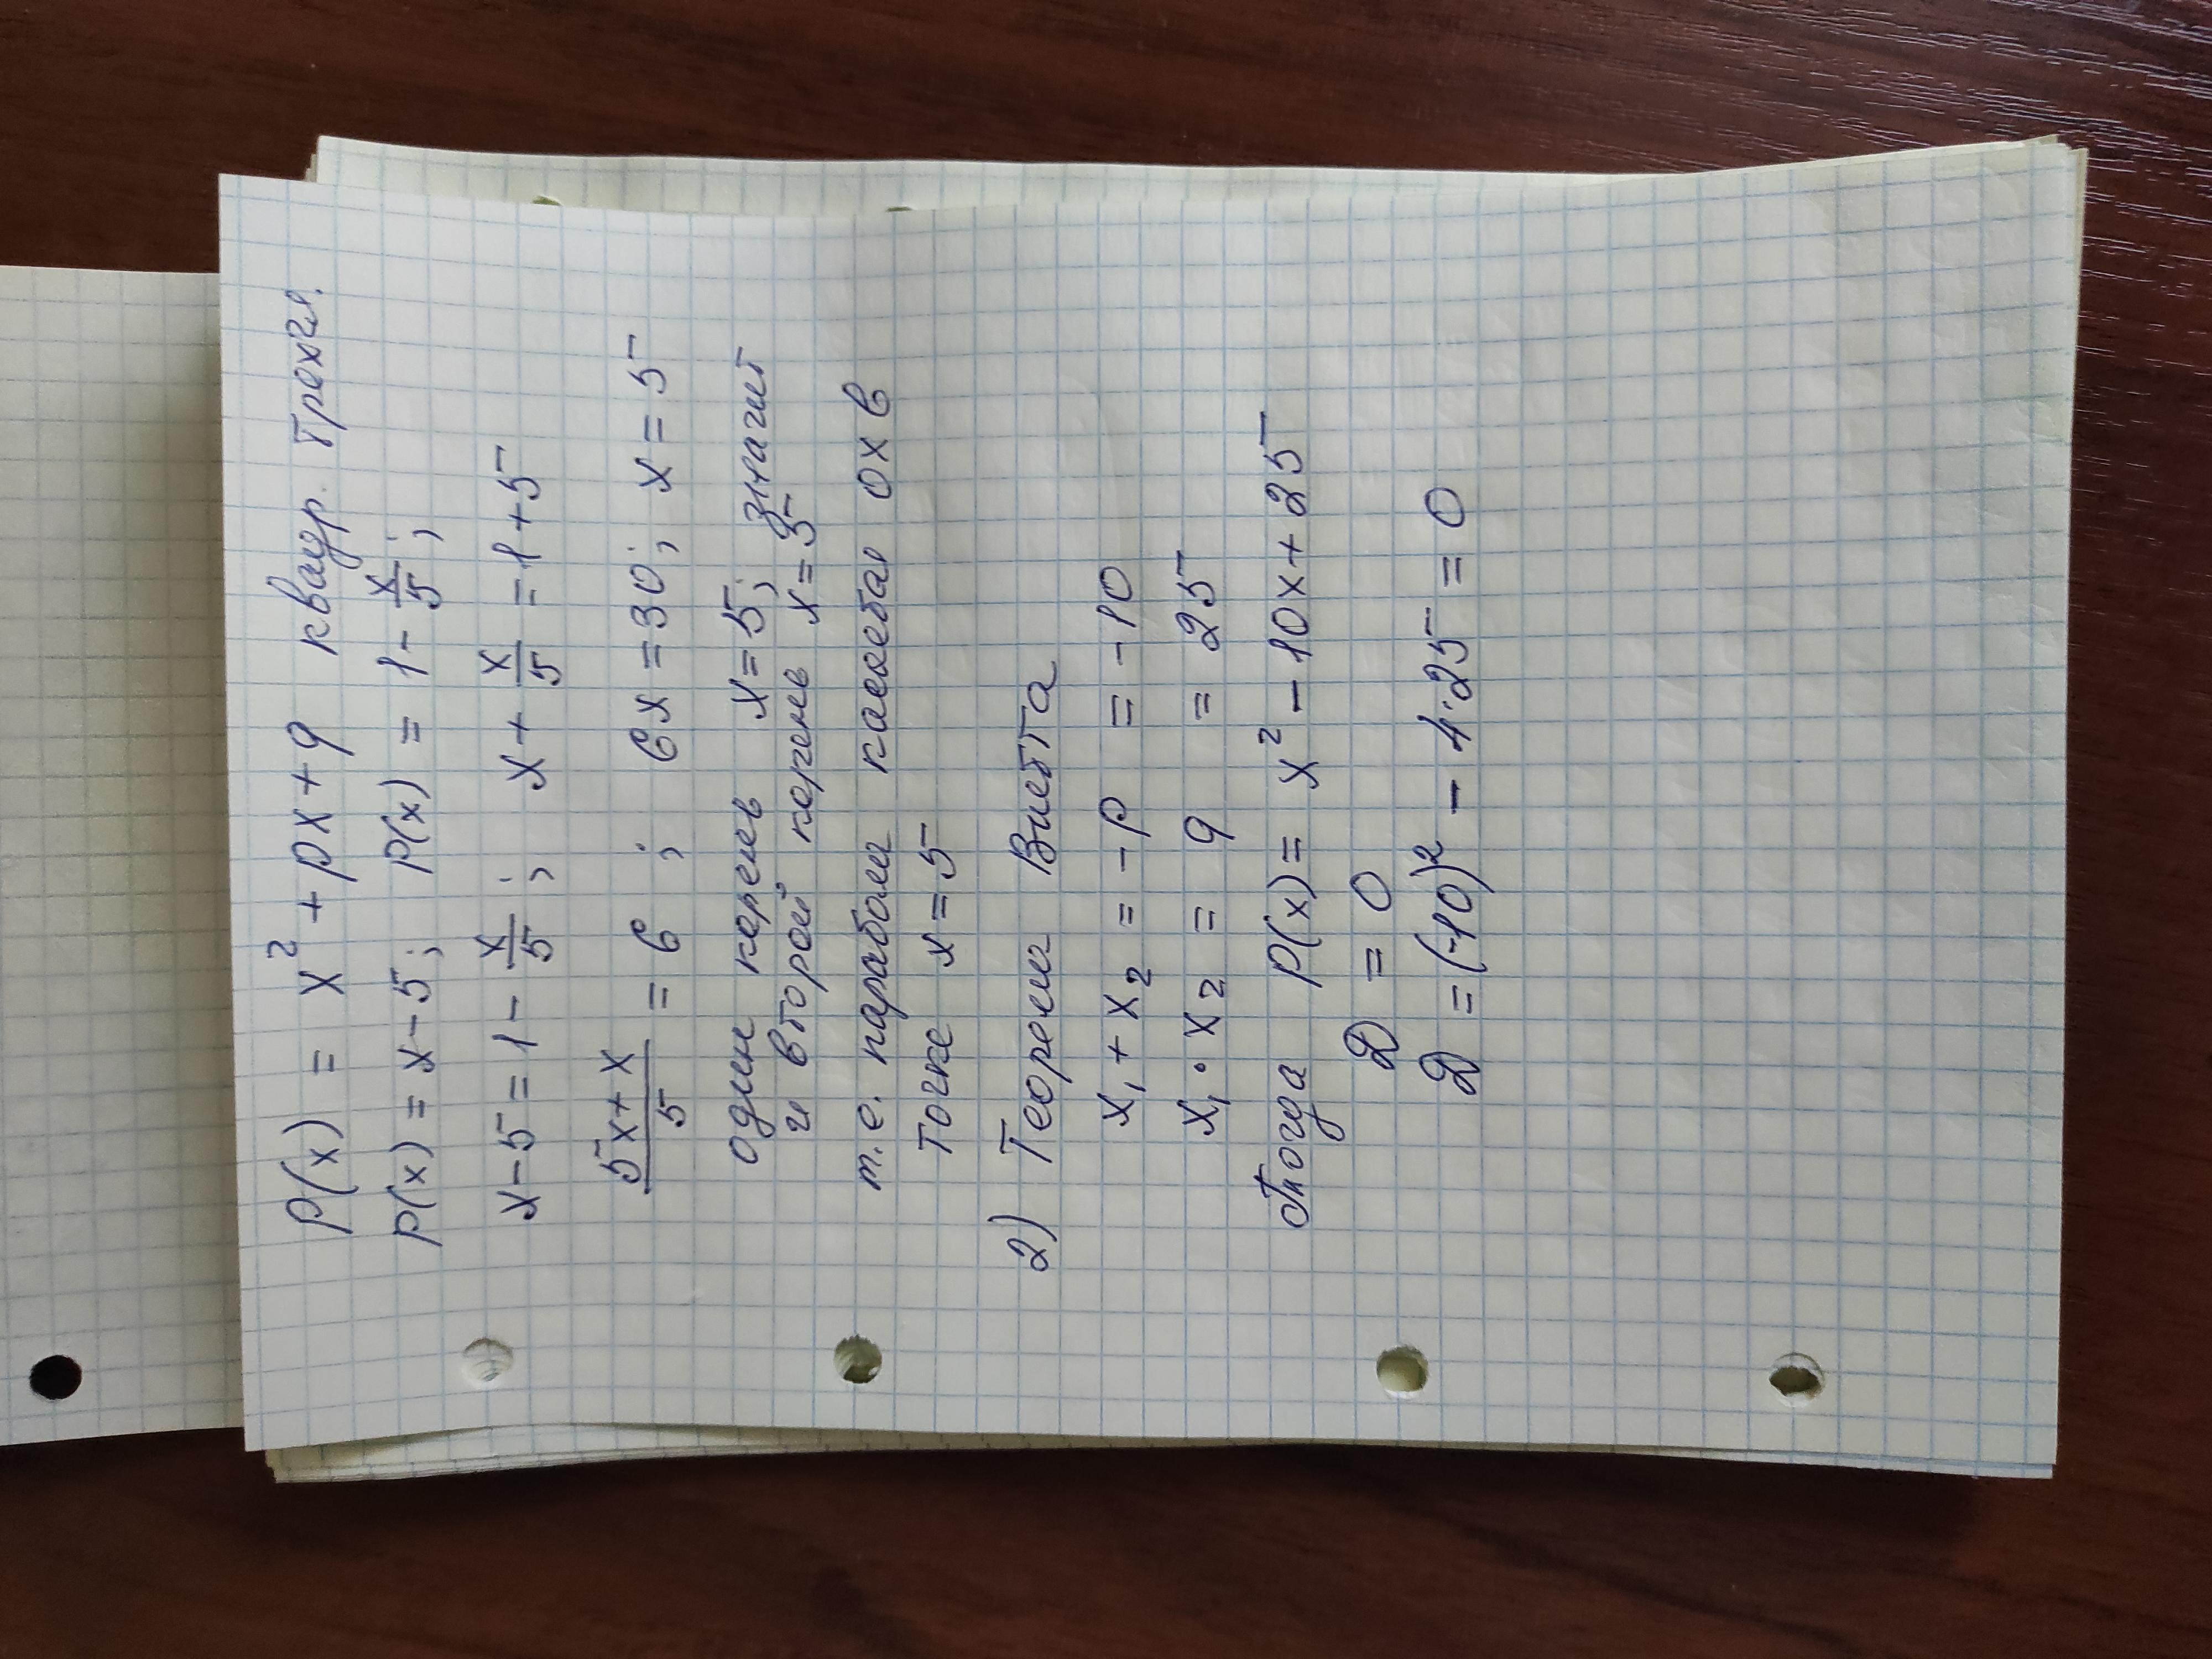 P(x) = x² + px + q квадр. трехчл.
P(x) = x - 5; P(x) = 1 - x/5;
x - 5 = 1 - x/5; x + x/5 = 1 + 5
(5x + x)/5 = 6; 6x = 30; x = 5
один корень x = 5; значит
и второй корень x = 5
т.е. парабола касается ОХ в
точке x = 5
2) Теорема Виетта
x₁ + x₂ = -p = -10
x₁ · x₂ = q = 25
тогда P(x) = x² - 10x + 25
D = 0
D = (-10)² - 4·25 = 0